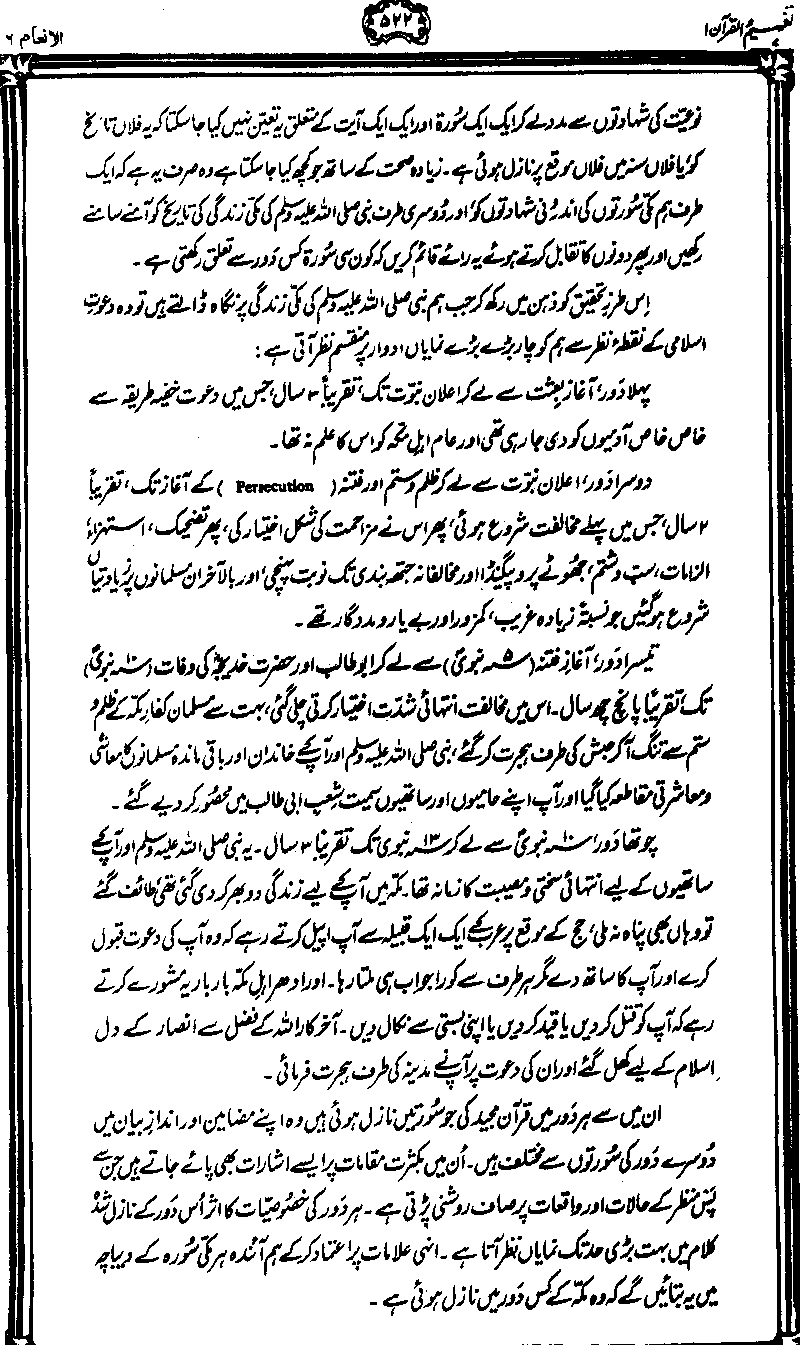 تفہیم القرآن ا
۵۲۲
الانعام ۶
نوعیّت کی شہادتوں سے مدد لے کر ایک ایک سُورۃ اور ایک ایک آیت کے متعلق یہ تعیّن نہیں کیا جا سکتا کہ یہ فلاں تاریخ
کو، یا فلاں سنہ میں فلاں موقع پر نازل ہوئی ہے۔ زیادہ صحت کے ساتھ جو کچھ کیا جا سکتا ہے وہ صرف یہ ہے کہ ایک
طرف ہم مکّی سُورتوں کی اندرونی شہادتوں کو، اور دُوسری طرف نبی صلی اللہ علیہ وسلم کی مکّی زندگی کی تاریخ کو آمنے سامنے
رکھیں اور پھر دونوں کا تقابل کرتے ہوئے یہ رائے قائم کریں کہ کون سی سُورۃ کس دَور سے تعلق رکھتی ہے۔
اِس طرزِ تحقیق کو ذہن میں رکھ کر جب ہم نبی صلی اللہ علیہ وسلم کی مکّی زندگی پر نگاہ ڈالتے ہیں تو وہ دعوتِ
اسلامی کے نقطۂ نظر سے ہم کو چار بڑے بڑے نمایاں ادوار پر منقسم نظر آتی ہے:
پہلا دَور، آغازِ بعثت سے لے کر اعلانِ نبوّت تک، تقریباً ۳ سال، جس میں دعوت خفیہ طریقہ سے
خاص خاص آدمیوں کو دی جا رہی تھی اور عام اہلِ مکّہ کو اس کا علم نہ تھا۔
دوسرا دَور، اعلانِ نبوّت سے لے کر ظلم و ستم اور فتنہ (Persecution) کے آغاز تک، تقریباً
۲ سال، جس میں پہلے مخالفت شروع ہوئی، پھر اس نے مزاحمت کی شکل اختیار کی، پھر تضحیک، استہزاء،
الزامات، سبّ و شتم، جھُوٹے پروپیگنڈا اور مخالفانہ جتھہ بندی تک نوبت پہنچی، اور بالآخر ان مسلمانوں پر زیادتیاں
شروع ہو گئیں جو نسبتہً زیادہ غریب، کمزور اور بے یار و مددگار تھے۔
تیسرا دَور، آغازِ فتنہ (۵ سنہ نبویؐ) سے لے کر ابو طالب اور حضرت خدیجہؓ کی وفات (۱۰ سنہ نبویؐ)
تک، تقریباً پانچ چھ سال۔ اس میں مخالفت انتہائی شدّت اختیار کرتی چلی گئی، بہت سے مسلمان کفارِ مکّہ کے ظلم و
ستم سے تنگ آ کر حبش کی طرف ہجرت کر گئے، نبی صلی اللہ علیہ وسلم اور آپؐ کے خاندان اور باقی ماندہ مسلمانوں کا معاشی
و معاشرتی مقاطعہ کیا گیا اور آپ اپنے حامیوں اور ساتھیوں سمیت شِعبِ ابی طالب میں محصُور کر دیے گئے۔
چوتھا دَور، ۱۰ سنہ نبویؐ سے لے کر ۱۳ سنہ نبوی تک تقریباً ۳ سال۔ یہ نبی صلی اللہ علیہ وسلم اور آپؐ کے
ساتھیوں کے لیے انتہائی سختی و مصیبت کا زمانہ تھا۔ مکّہ میں آپؐ کے لیے زندگی دوبھر کر دی گئی تھی، طائف گئے
تو وہاں بھی پناہ نہ ملی، حج کے موقع پر عرب کے ایک ایک قبیلہ سے آپ اپیل کرتے رہے کہ وہ آپ کی دعوت قبول
کرے اور آپ کا ساتھ دے مگر ہر طرف سے کورا جواب ہی ملتا رہا۔ اور ادھر اہلِ مکّہ بار بار یہ مشورے کرتے
رہے کہ آپ کو قتل کر دیں یا قید کر دیں یا اپنی بستی سے نکال دیں۔ آخر کار اللہ کے فضل سے انصار کے دل
اسلام کے لیے کھل گئے اور ان کی دعوت پر آپؐ نے مدینہ کی طرف ہجرت فرمائی۔
ان میں سے ہر دَور میں قرآن مجید کی جو سُورتیں نازل ہوئی ہیں وہ اپنے مضامین اور اندازِ بیان میں
دُوسرے دَور کی سُورتوں سے مختلف ہیں۔ اُن میں بکثرت مقامات پر ایسے اشارات بھی پائے جاتے ہیں جن سے
پس منظر کے حالات اور واقعات پر صاف روشنی پڑتی ہے۔ ہر دَور کی خصُوصیّات کا اثر اُس دَور کے نازل شدہ
کلام میں بہت بڑی حد تک نمایاں نظر آتا ہے۔ انہی علامات پر اعتماد کر کے ہم آئندہ ہر مکّی سُورہ کے دیباچہ
میں یہ بتائیں گے کہ وہ مکّہ کے کس دَور میں نازل ہوئی ہے۔